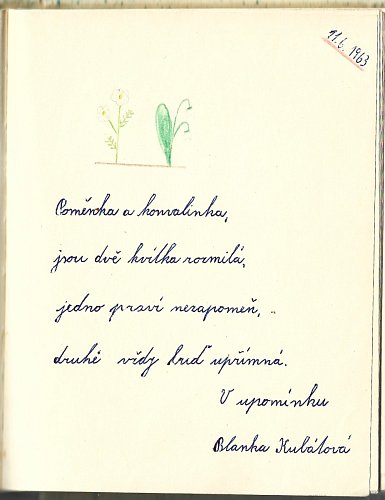 11.6. 1963
Pomněnka a konvalinka,
jsou dvě kvítka rozmilá,
jedno praví nezapomeň, ..
druhé vždy buď upřímná.
V upomínku
Blanka Kubátová